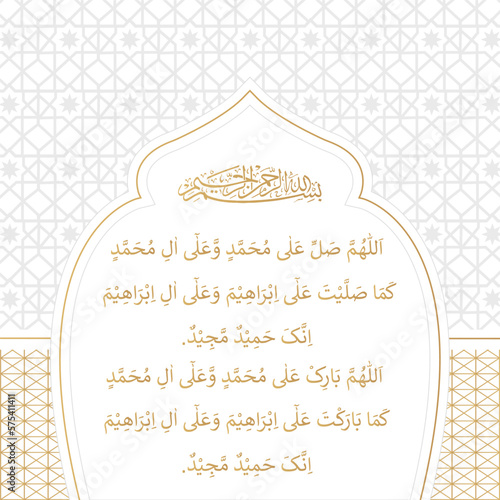 بسم الله الرحمن الرحيم
اَللّٰهُمَّ صَلِّ عَلٰى مُحَمَّدٍ وَّعَلٰٓى اٰلِ مُحَمَّدٍ
كَمَا صَلَّيْتَ عَلٰٓى اِبْرَاهِيْمَ وَعَلٰٓى اٰلِ اِبْرَاهِيْمَ
اِنَّکَ حَمِيْدٌ مَّجِيْدٌ.
اَللّٰهُمَّ بَارِکْ عَلٰى مُحَمَّدٍ وَّعَلٰٓى اٰلِ مُحَمَّدٍ
كَمَا بَارَكْتَ عَلٰٓى اِبْرَاهِيْمَ وَعَلٰٓى اٰلِ اِبْرَاهِيْمَ
اِنَّکَ حَمِيْدٌ مَّجِيْدٌ.
Adobe Stock
575411411